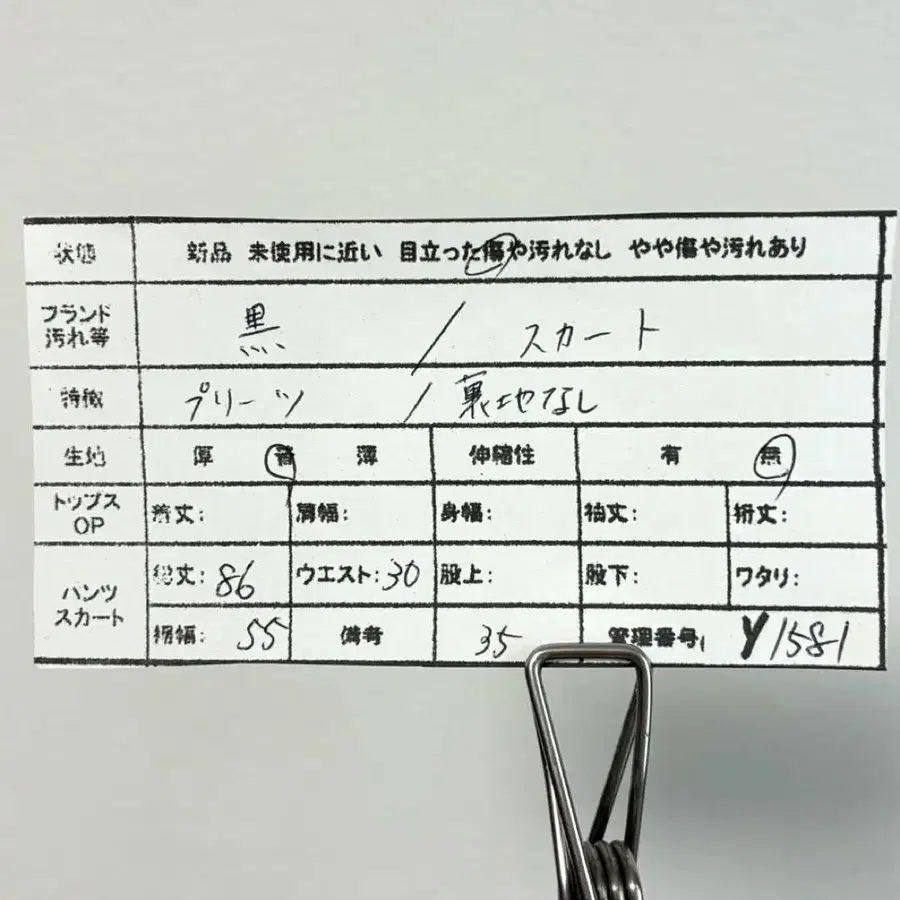 状態 新品 未使用に近い 目立った傷や汚れなし やや傷や汚れあり
ブランド 汚れ等 黒 / スカート
特徴 プリーツ / 裏地なし
生地 厚 普 薄 伸縮性 有 無
トップス OP 着丈: 肩幅: 身幅: 袖丈: 裄丈:
パンツ スカート 総丈: 86 ウエスト: 30 股上: 股下: ワタリ:
裾幅: 55 備考 35 管理番号 Y1581